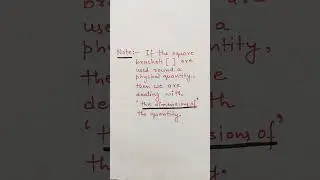 Note:- If the square
brackets [ ] are
used round a
physical quantity,
then we are
dealing with
'the dimensions of'
the quantity.